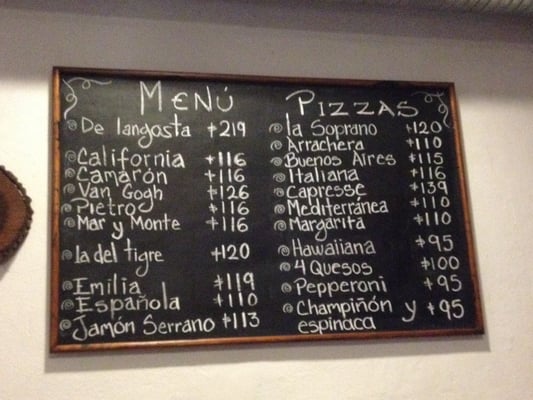 MENÚ
De langosta $219
California $116
Camarón $116
Van Gogh $126
Pietro $116
Mar y Monte $116
la del tigre $120
Emilia $119
Española $110
Jamón Serrano $113
PIZZAS
la Soprano $120
Arrachera $110
Buenos Aires $115
Italiana $116
Capresse $139
Mediterránea $110
Margarita $110
Hawaiiana $95
4 Quesos $100
Pepperoni $95
Champiñón y $95
espinaca